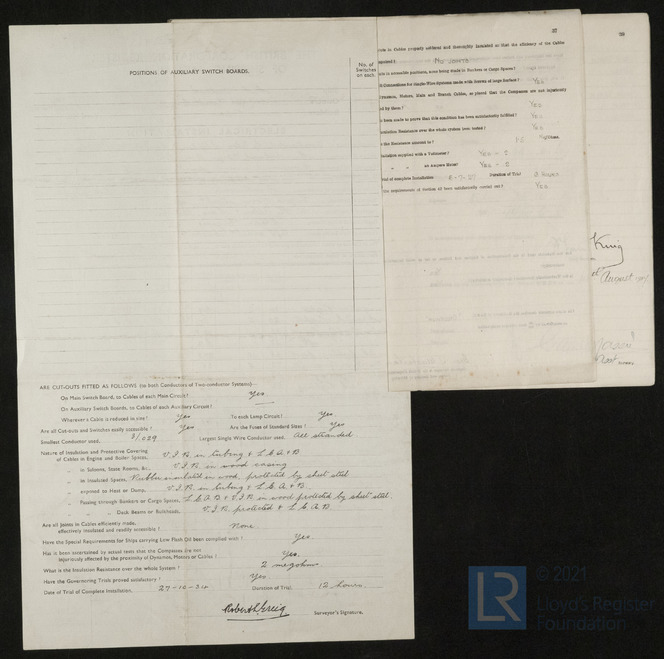 POSITIONS OF AUXILIARY SWITCH BOARDS.
No. of
Switches
on each
ARE CUT-OUTS FITTED AS FOLLOWS (to both Conductors of Two-conductor Systems)—
On Main Switch Board, to Cables of each Main Circuit? Yes
On Auxiliary Switch Boards, to Cables of each Auxiliary Circuit?
Wherever Cable is reduced in size? Yes To each Lamp Circuit? Yes
Are all Cut-outs and Switches easily accessible? Yes Are the Fuses of Standard Sizes? Yes
Smallest Conductor used, 3/029 Largest Single Wire Conductor used, All stranded
Nature of Insulation and Protective Covering
of Cables in Engine and Boiler Spaces, V.I.R. in tubing & L.C.A.+B
„ in Saloons, State Rooms, &c., V.I.R. in wood casing
„ in Insulated Spaces, Rubber insulated in wood, protected by sheet steel
„ exposed to Heat or Damp, V.I.R. in tubing & L.C.A.+B.
„ Passing through Bunkers or Cargo Spaces, L.C.A.B & V.I.R. in wood protected by sheet steel.
„ „ Deck Beams or Bulkheads, V.I.R. protected & L.C.A.B
Are all Joints in Cables efficiently made,
effectively insulated and readily accessible? None
Have the Special Requirements for Ships carrying Low Flash Oil been complied with? Yes.
Has it been ascertained by actual tests that the Compasses are not
injuriously affected by the proximity of Dynamos, Motors or Cables? Yes.
What is the Insulation Resistance over the whole System? 2 megohms
Have the Governing Trials proved satisfactory? Yes
Date of Trial of Complete Installation, 27-10-34 Duration of Trial, 12 hours.
Robert L Greig Surveyor's Signature.
37
in Cables properly soldered and thoroughly insulated so that the efficiency of the Cables
No Joints
in accessible positions, none being made in Bunkers or Cargo Spaces?
Connections for Single-Wire Systems made with Screws of large Surface? Yes
Dynamos, Motors, Main and Branch Cables, so placed that the Compasses are not injuriously
by them? Yes
been made to prove that this condition has been satisfactorily fulfilled? Yes
Insulation Resistance over the whole system been tested? Yes
the Resistance amount to? Ohms.
supplied with a Voltmeter? Yes - 2
„ „ an Ampere Meter? Yes - 2
of complete Installation Duration of Trial 8 Hours
the requirements of Section 42 been satisfactorily carried out? Yes
39
King
August
© 2021
LR
Lloyd's Register
Foundation